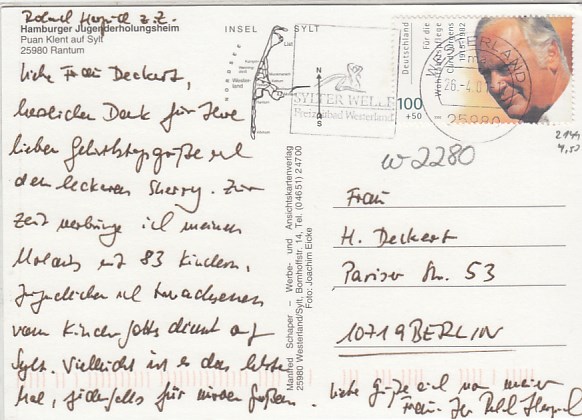 z.Z.
Hamburger Jugenderholungsheim
Puan Klent auf Sylt
25980 Rantum
Liebe Frau Deckert,
herzlichen Dank für Ihre
lieben Geburtstagsgrüße und
den leckeren Sherry. Zur
Zeit verbringe ich meinen
mit 83 Kindern,
Jugendlichen und Erwachsenen
vom Kindergottesdienst auf
Sylt. Vielleicht ist es das letzte
Mal, jedenfalls für
Liebe Grüße auch von meiner
Frau. Ihr
INSEL SYLT
List
Westerland
N
S
SYLTER WELLE
Freizeitbad Westerland
WESTERLAND
26.-4.01
25980
Deutschland
Für die
Wohlfahrtspflege
1915-1982
100
+50
2149
4,50
W2280
Manfred Schaper – Werbe- und Ansichtskartenverlag
25980 Westerland/Sylt, Bomhoffstr. 14, Tel. (04651) 24700
Foto: Joachim Eicke
Frau
H. Deckert
Pariser Str. 53
10719 BERLIN